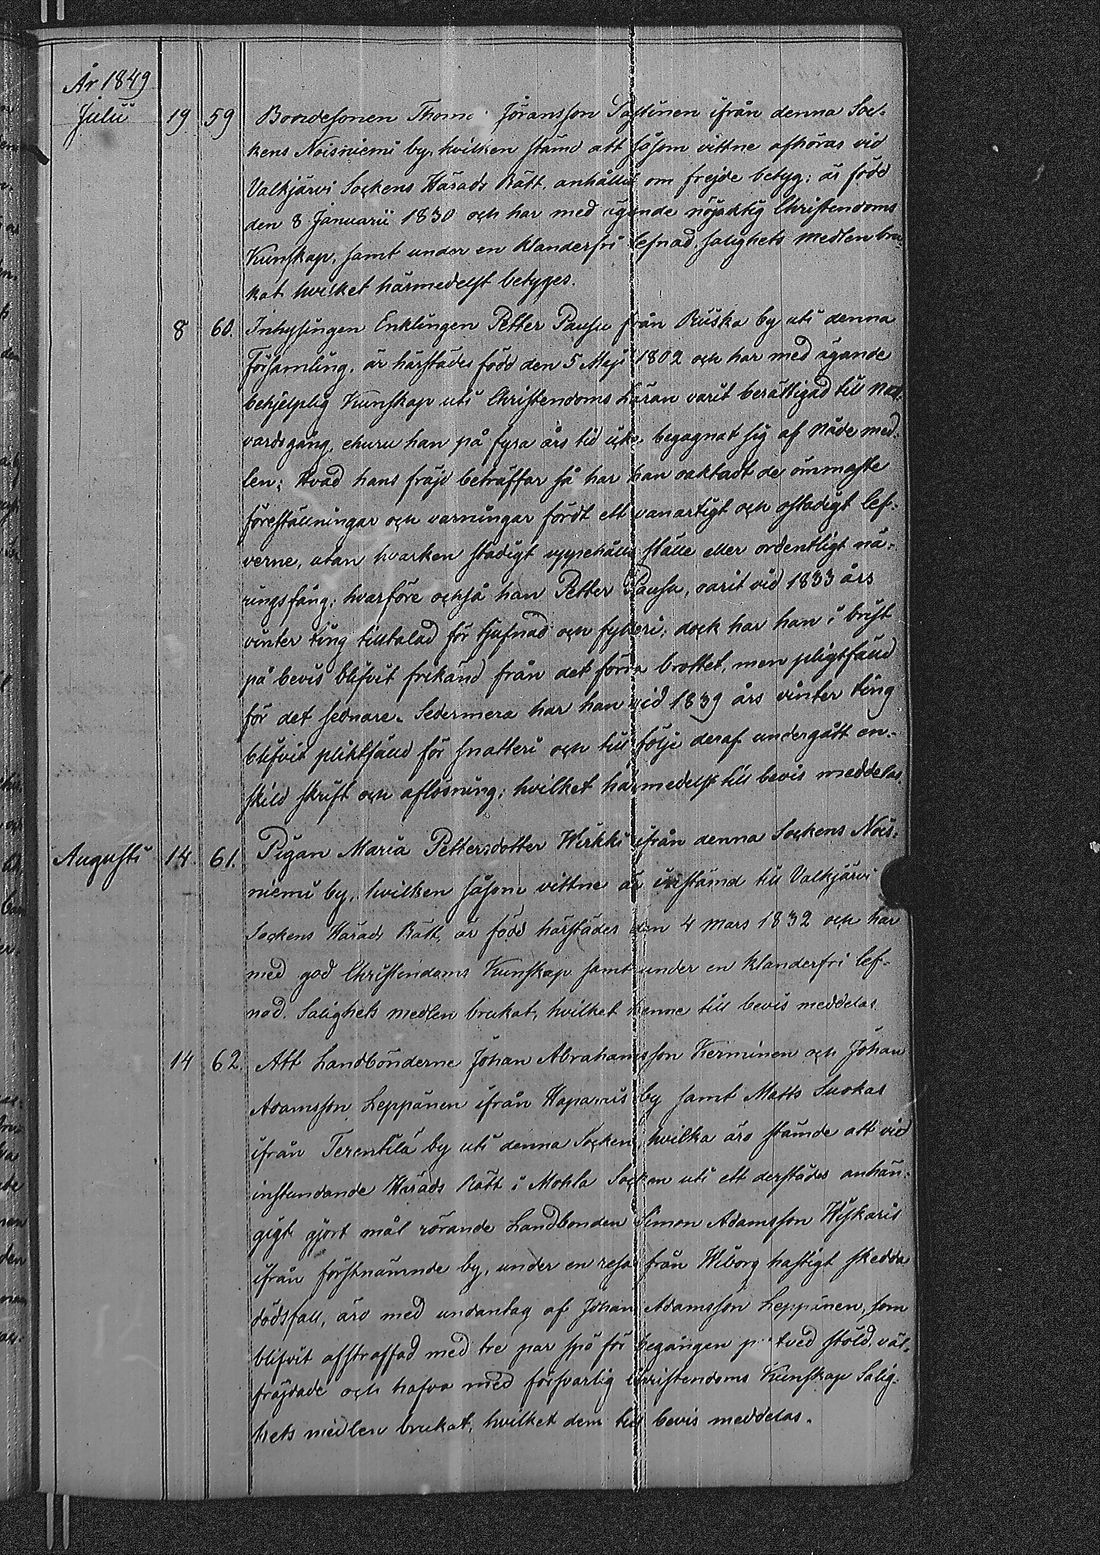 År 1849
Julii 19 59 Bondesonen Thom Jöransson ifrån denna Soc-
kens Noisniemi by, hvilken stämd att såsom vittne afhöras vid
Valkjärvi Sockens Härads Rätt, anhållit om frejde betyg: är född
den 8 Januarii 1830 och har med ägande nöjaktig Christendoms
Kunskap, samt under en klanderfri lefnad, salighets medlen bru-
kat hvilket härmedelst betyges.
8 60. Inhysingen Enklingen Petter Pausu från Ruska by uti denna
Församling, är härstädes född den 5 Maji 1802 och har med ägande
behjelplig Kunskap uti Christendoms Läran varit berättigad till natt-
vardsgång, ehuru han på fyra års tid icke begagnat sig af nåde med-
len; Hvad hans fräjd beträffar så har han oaktadt de ömmaste
föreställningar och varningar fördt ett vanartigt och ostadigt lef-
verne, utan hvarken stadigt uppehålls ställe eller ordentligt nä-
ringsfång; hvarföre också han Petter Pausu, varit vid 1833 års
vinter ting tilltalad för tjufnad och fylleri; dock har han i brist
på bevis blifvit frikänd från det förra brottet, men pligtfälld
för det sednare. Sedermera har han vid 1839 års vinter ting
blifvit pliktfälld för snatteri och till följe deraf undergått en-
skild skrift och aflösning; hvilket härmedelst till bevis meddelas
Augusti 14 61. Pigan Maria Pettersdotter Wirkki ifrån denna Sockens Nois-
niemi by, hvilken såsom vittne är instämd till Valkjärvi
Sockens Härads Rätt, är född härstädes den 4 Mars 1832 och har
med god Christendoms Kunskap samt under en klanderfri lef-
nad. Salighets medlen brukat, hvilket henne till bevis meddelas
14 62. Att Landbönderne Johan Abrahamsson Kerminen och Johan
Adamsson Leppänen ifrån by samt Matts Suokas
ifrån Terentilä by uti denna Socken, hvilka äro stämde att vid
instundande Härads Rätt i Mohla Socken uti ett derstädes anhän-
gigt gjort mål rörande Landbonden Simon Adamsson
ifrån förstnämnde by, under en resa från Wiborg hastigt skedda
dödsfall, äro med undantag af Johan Adamsson Leppänen, som
blifvit afstraffad med tre par spö för begången stöld, väl-
fräjdade och hafva med försvarlig Christendoms Kunskap Salig-
hets medlen brukat, hvilket dem till bevis meddelas.